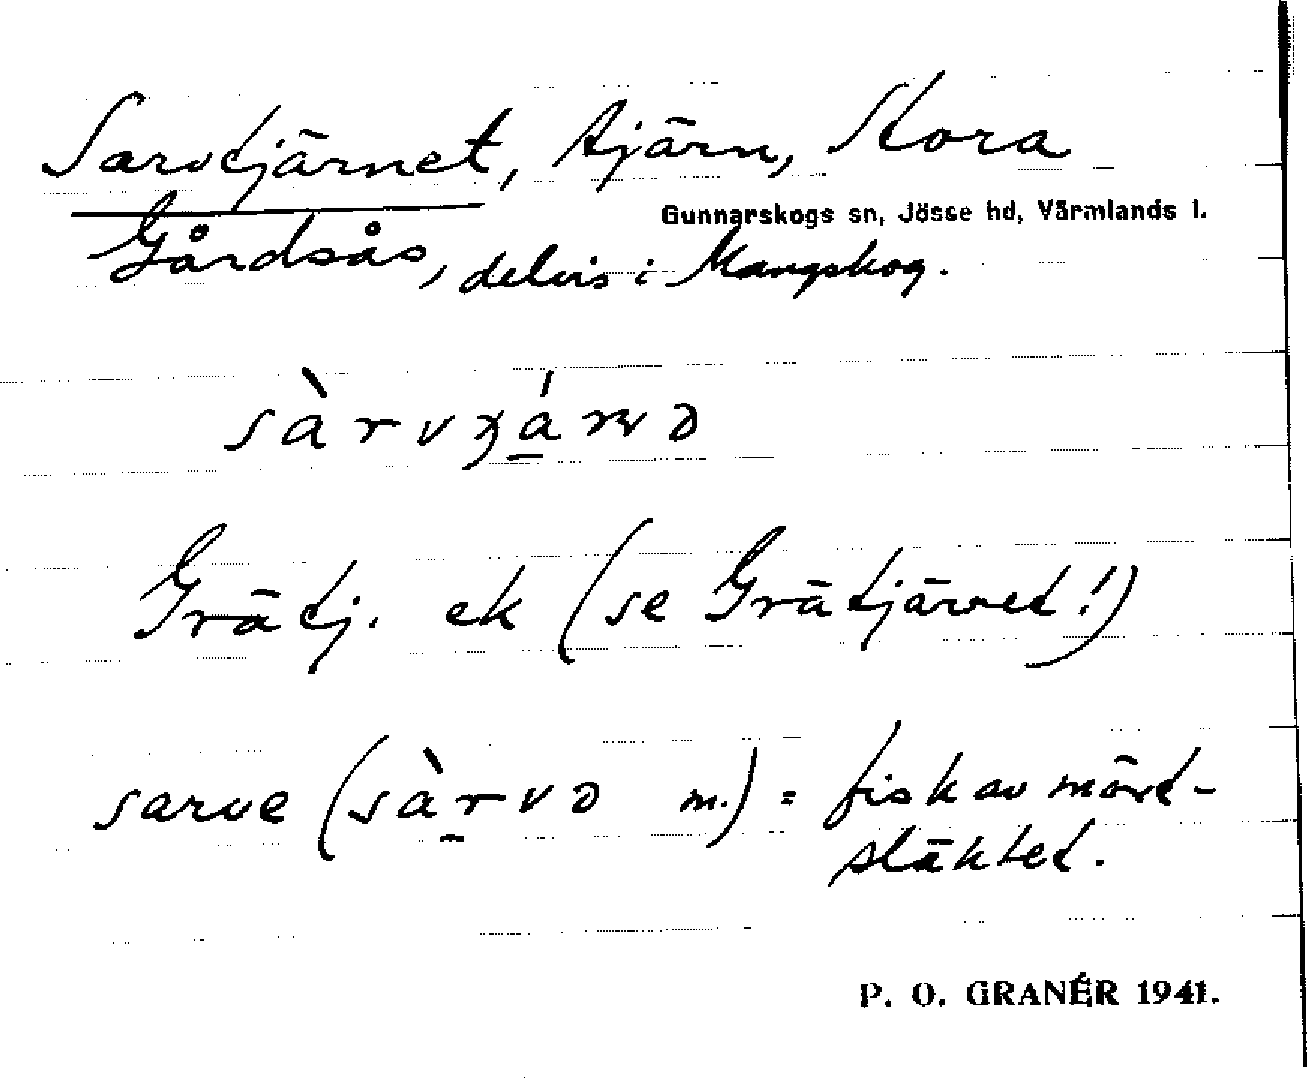 Sarvtjärnet, tjärn, Stora
Gunnarskogs sn, Jösse hd, Värmlands l.
Gårdsås, delvis i Mangskog.
Grätj. ek (se Grätjärnet!)
sarve (sàrvə m.) = fisk av mört-
släktet.
P. O. GRANÉR 1941.